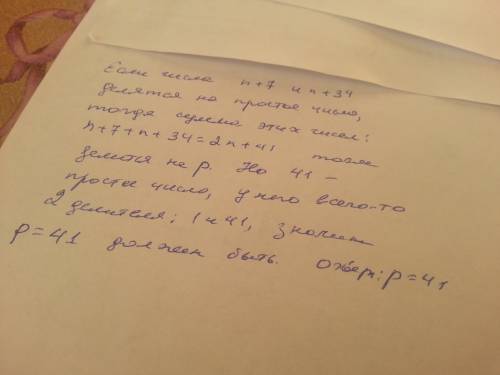 Если числа n+7 и n+34
делятся на простое число,
тогда сумма этих чисел:
n+7+n+34=2n+41 тоже
делится на p. Но 41 -
простое число, у него всего-то
2 делителя: 1 и 41, значит
p=41 должен быть. Ответ: p=41